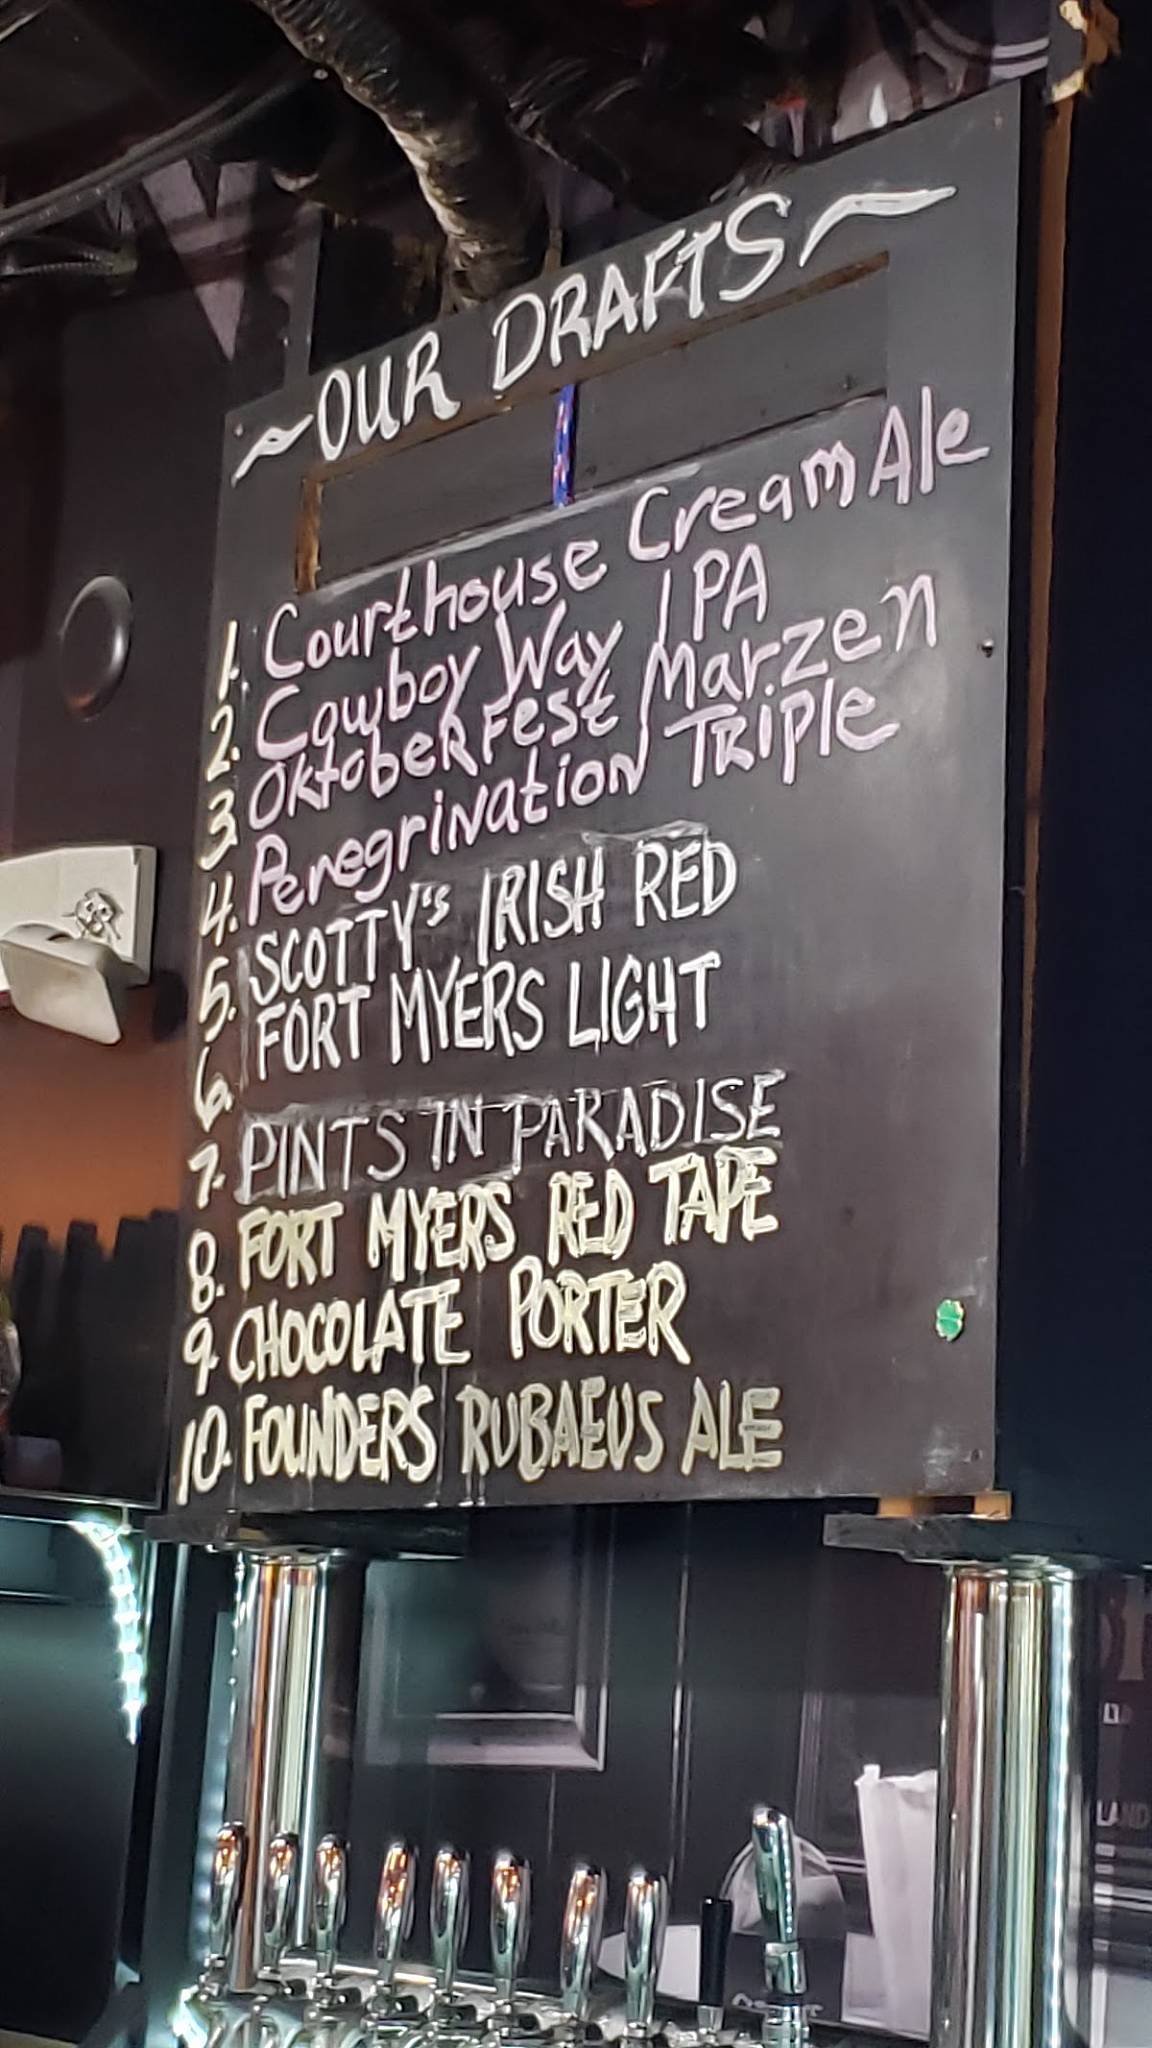 ~OUR DRAFTS~
1. Courthouse Cream Ale
2. Cowboy Way IPA
3. OktoberFest Marzen
4. Peregrination Triple
5. SCOTTY'S IRISH RED
6. FORT MYERS LIGHT
7. PINTS IN PARADISE
8. FORT MYERS RED TAPE
9. CHOCOLATE PORTER
10. FOUNDERS RUBAEUS ALE
LAND